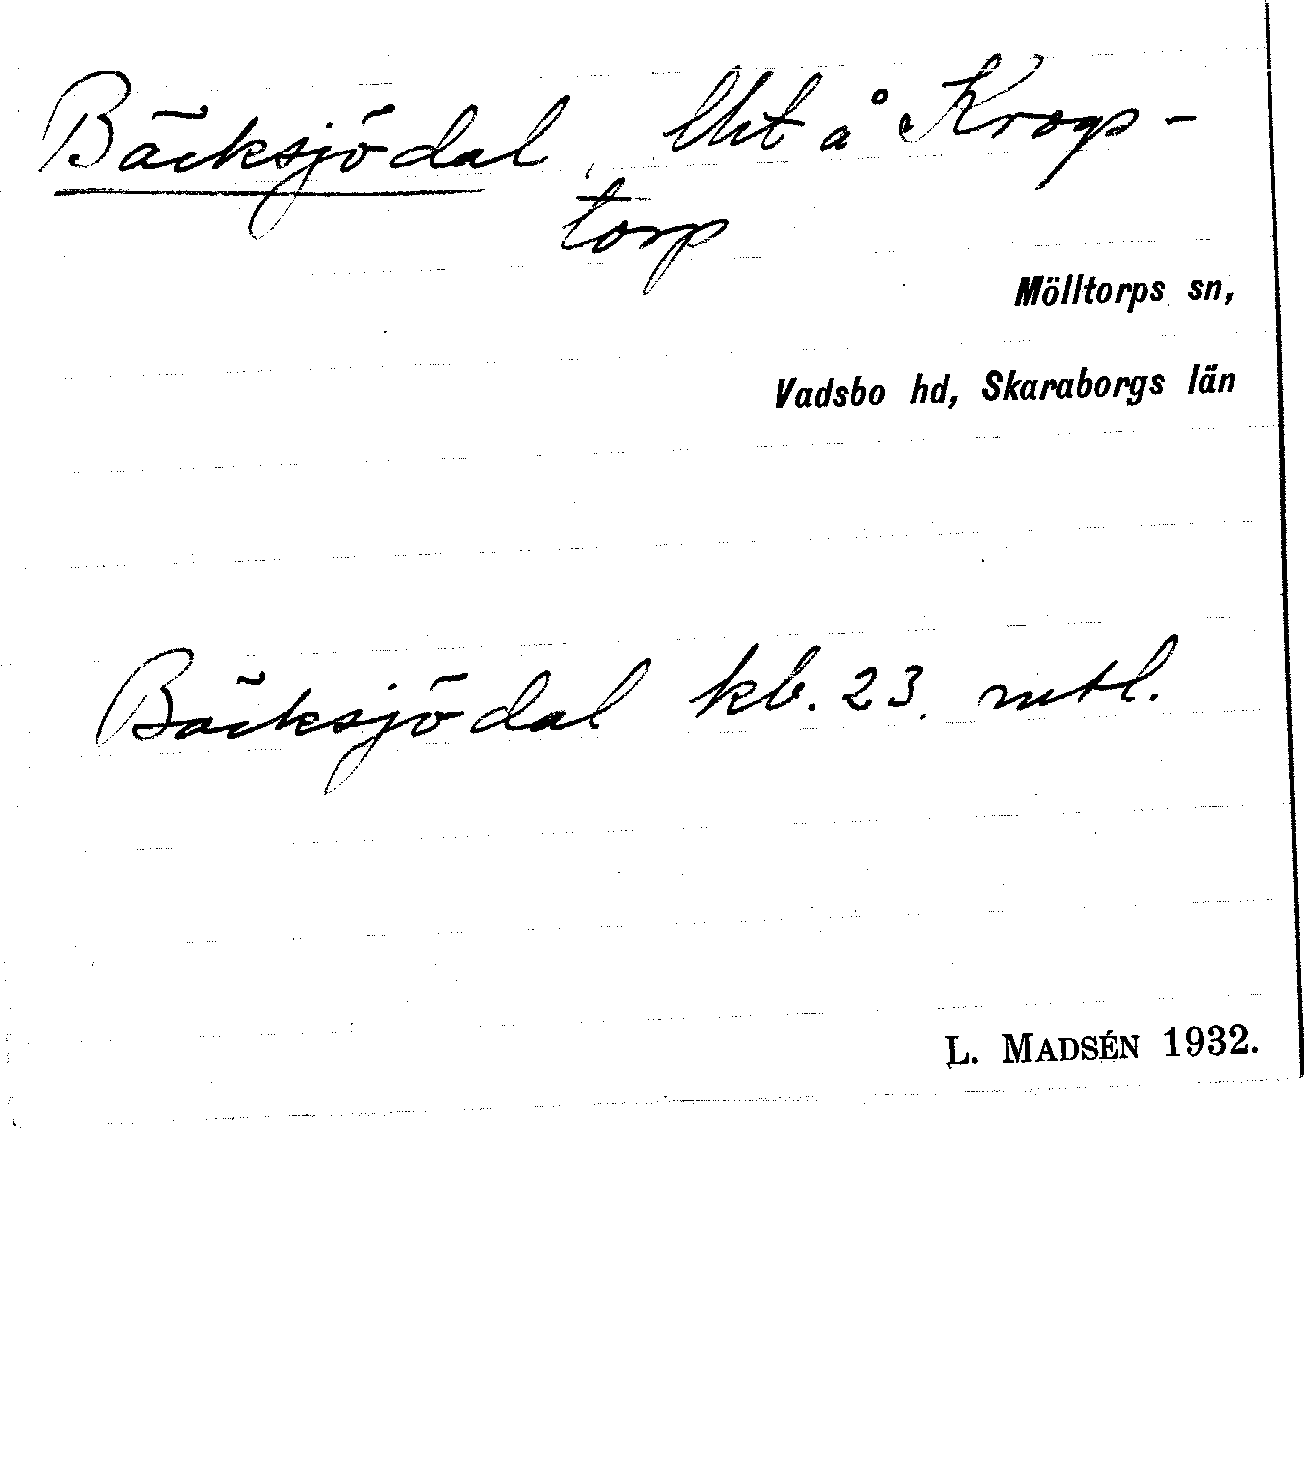 Bäcksjödal, lht å Krogs-
torp
Mölltorps sn,
Vadsbo hd, Skaraborgs län
Bäcksjödal kb. 23. mtl.
L. MADSÉN 1932.